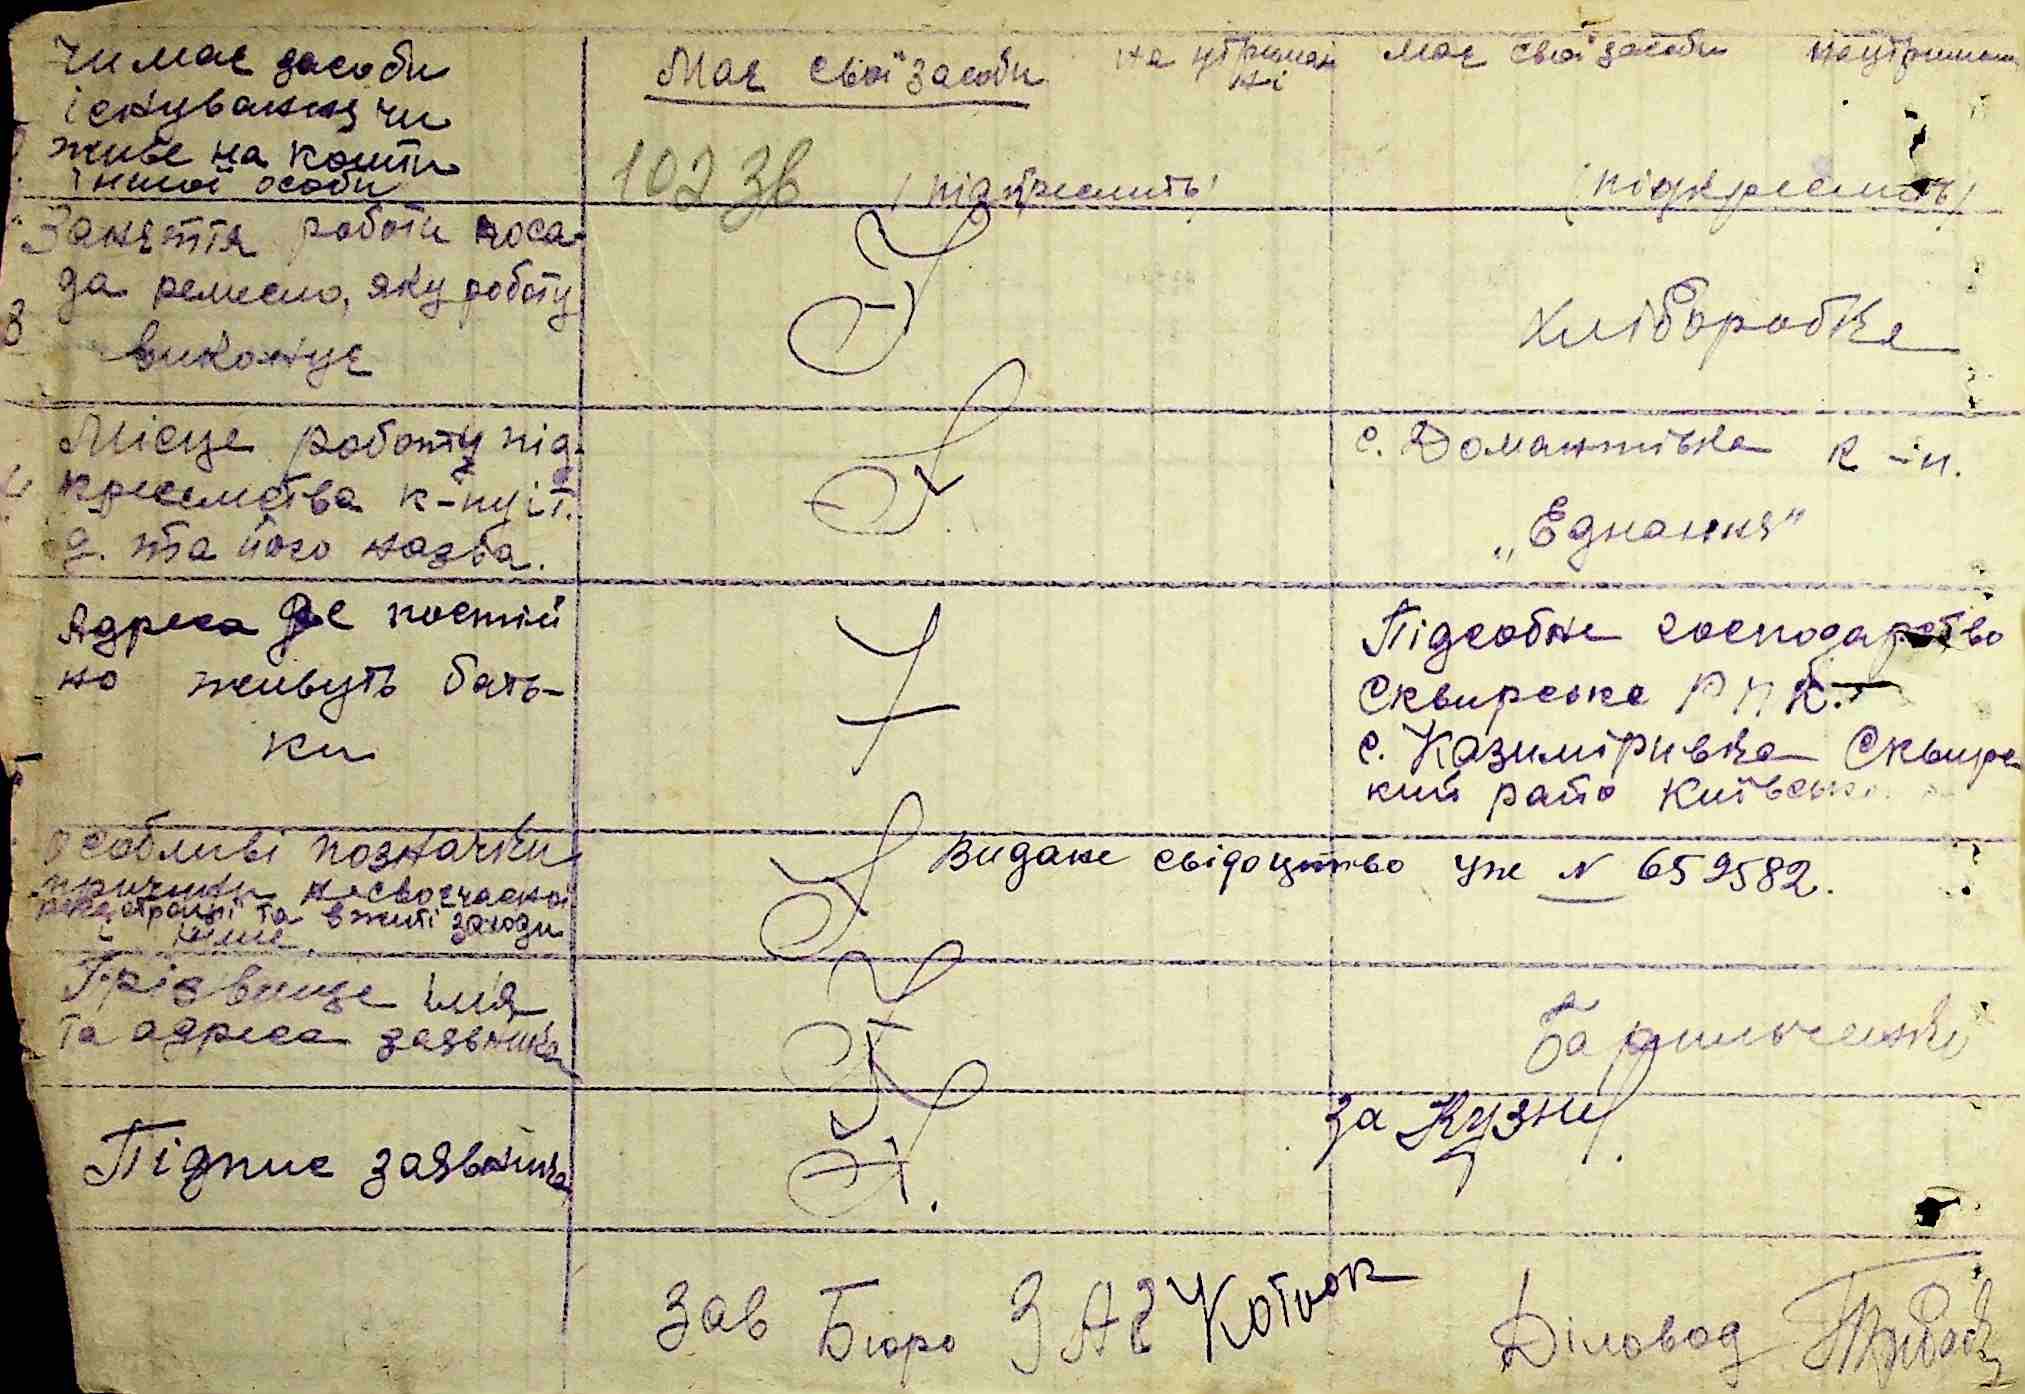 Чи має засоби
існування чи
живе на кошти
іншої особи
Має свої засоби на утриман
ні
має свої засоби на утриман
102 зв /підкреслить/
/підкреслить/
Заняття робота поса-
да ремесло, яку роботу
виконує
хліборобка
Місце роботи під-
приємства к-пу і т.
д. та його назва.
с. Домантівка к-п.
„Єднання"
Адреса де постій
но живуть бать-
ки
Підсобне господарство
Сквирське
с. Казимірівка Сквирс
кий райо Київськ
Особливі позначки
причини несвоєчасної
реєстрації та вжиті заходи
і інше
Видане свідоцтво уже № 659582.
Прізвище імя
та адреса заявника
Підпис заявника
за Кузн
Зав Бюро ЗАГ Котюк
Діловод